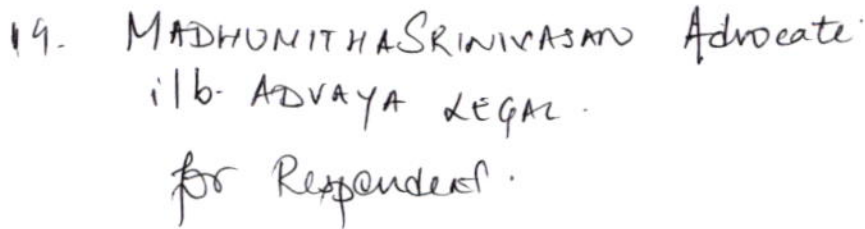 19. MADHUMITHA SRINIVASAN Advocate
i/b. ADVAYA LEGAL.
for Respondent.